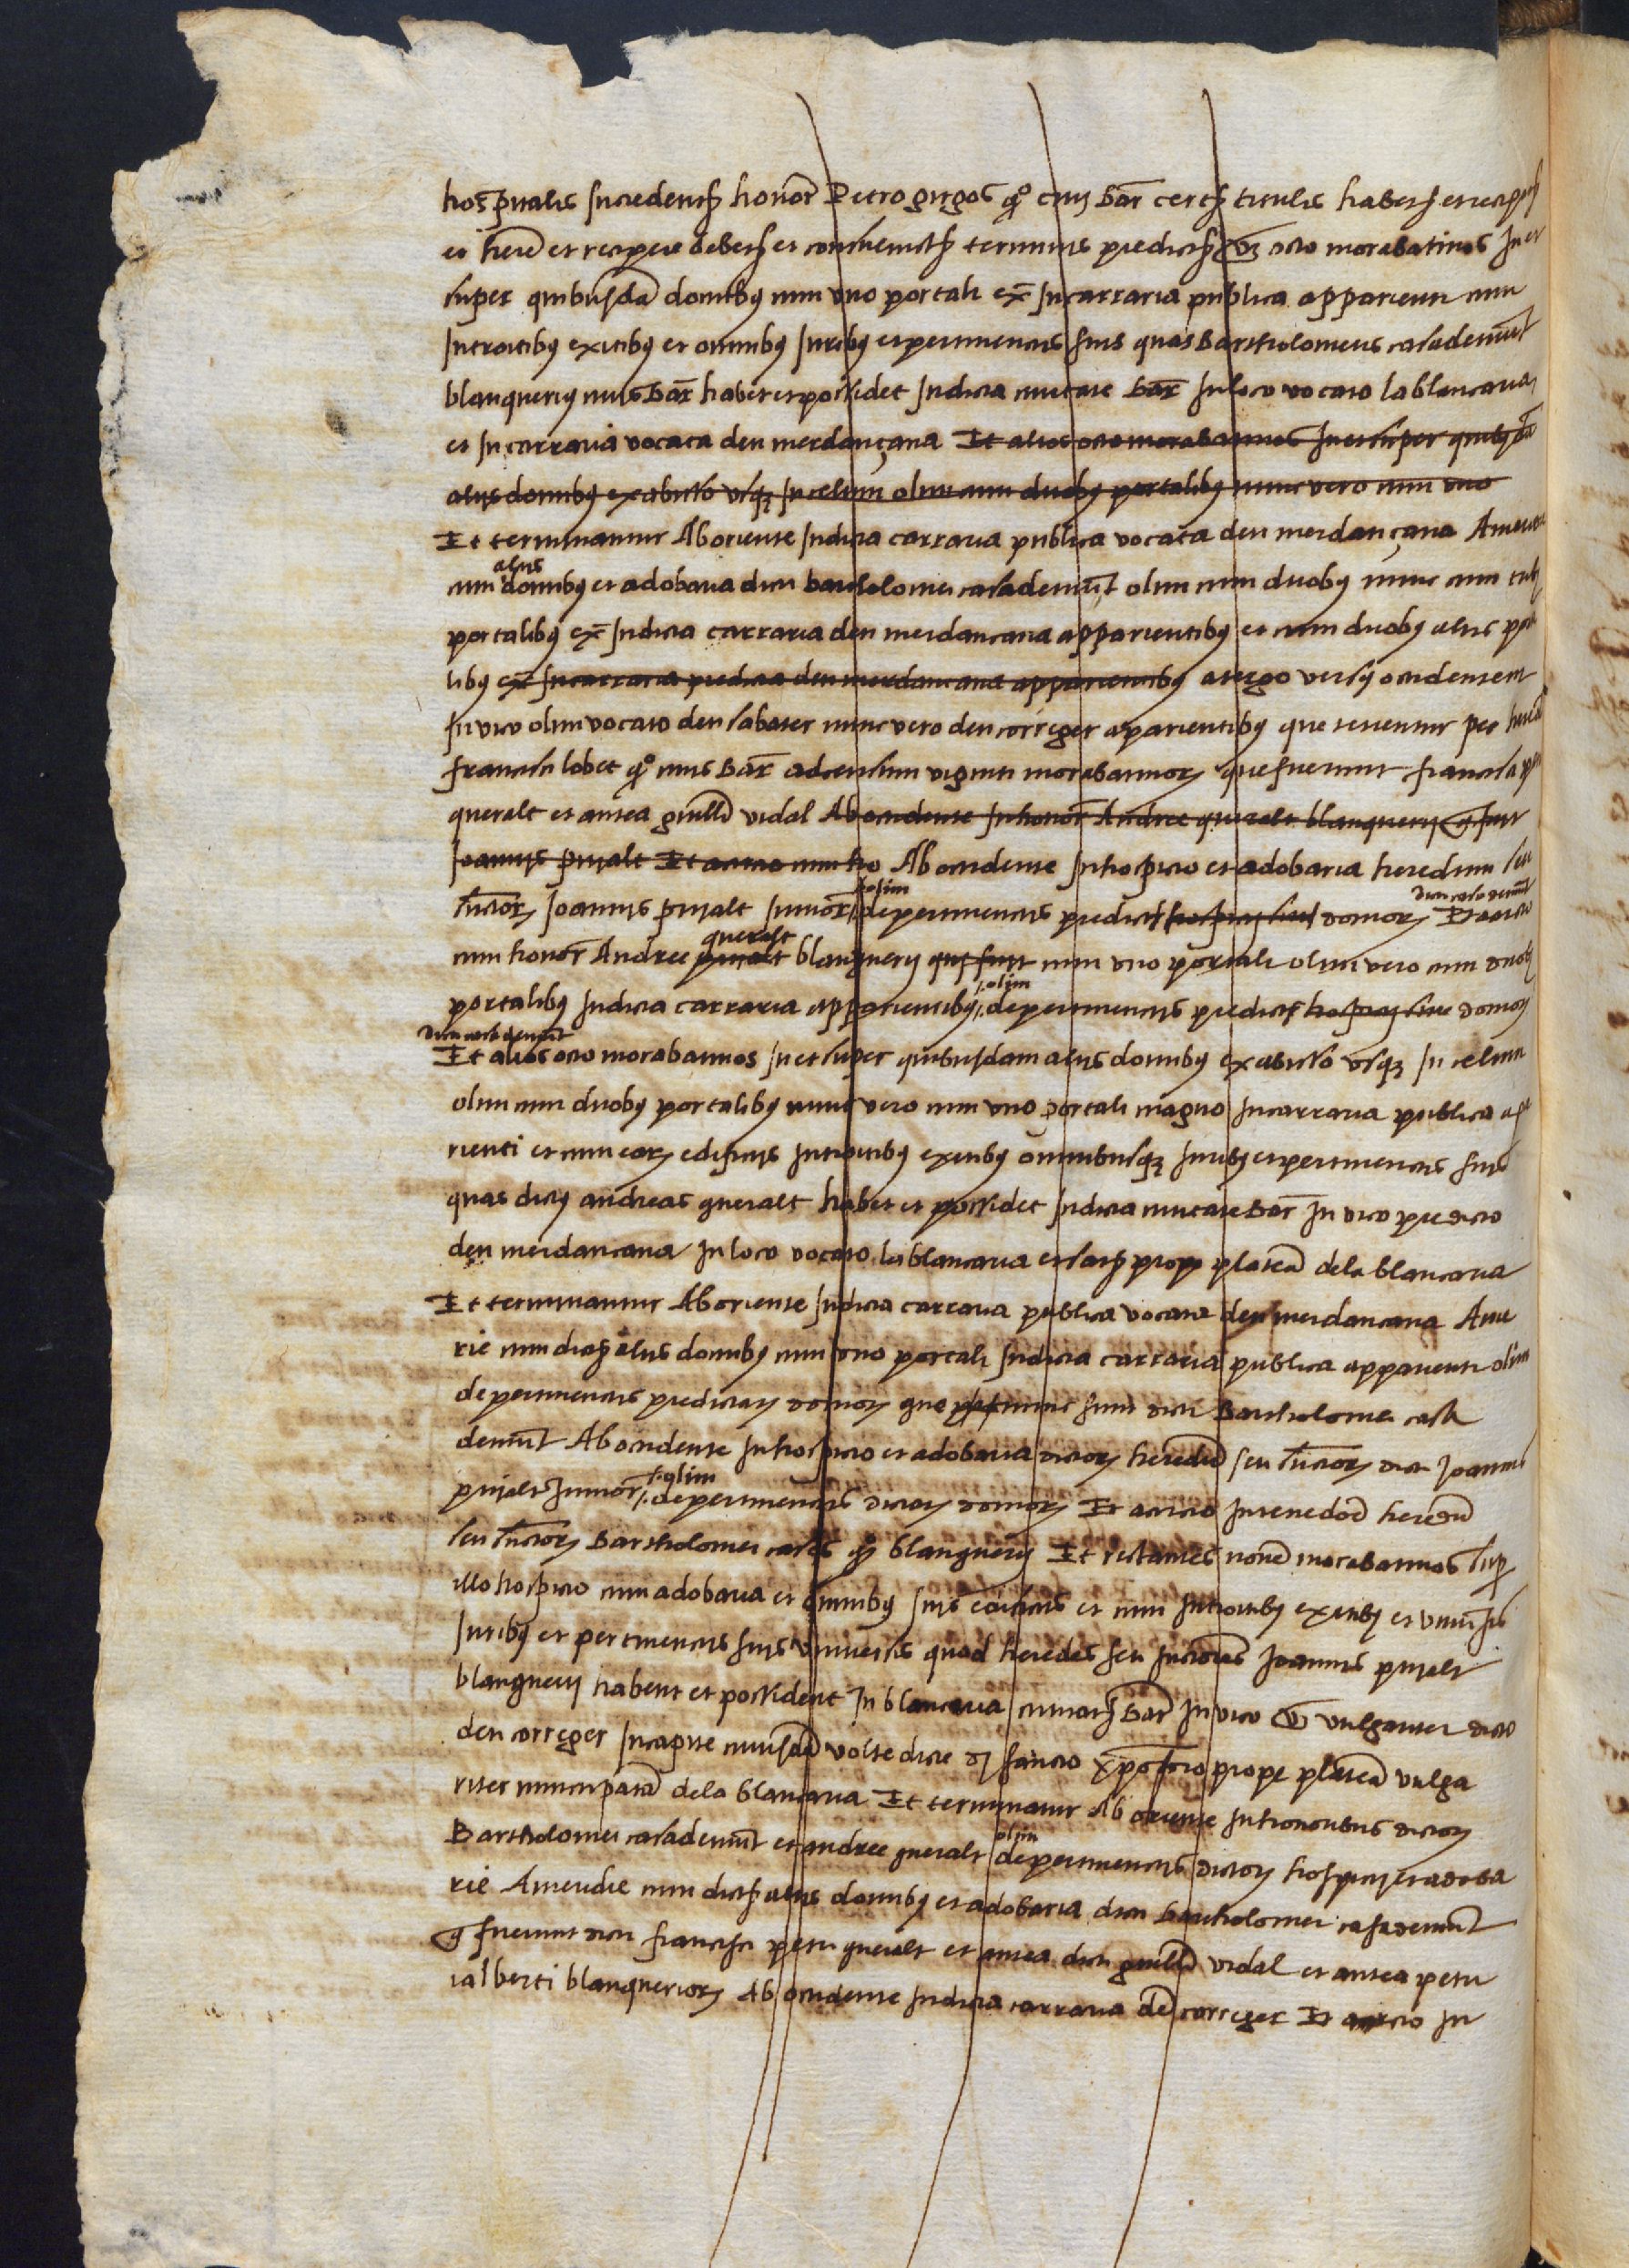 hospitalis succedentis honor Petro girgos q° civis Bar certis titulis habens et recipiens
et here et recipere debens et consuevit terminis predictis octo morabatinos In et
super quibusdã domibus cum uno portali ex In carraria publica apparienti cum
Introitibus exitibus et omnibus Juribus et pertinenciis suis quas Bartholomeus casademunt
blanquerius civis Bar habet et possidet In dicta civitate Bar In loco vocato la blancaria
et In carraria vocata den merdançana Et alios octo morabatinos In et super quibusdã
aliis domibus ex abisso usque In celum olim cum duobus portalibus nunc vero cum uno
Et terminantur Ab oriente In dicta carraria publica vocata den merdançana A meridie
cum aliis domibus et adobaria dicti bartholomei casademunt olim cum duobus nunc cum
portalibus ex In dicta carraria den merdancana apparientibus et cum duobus aliis porta
libus ex In carraria predicta den merdancana apparientibus atergo versus occidentem
In vico olim vocato den sabater nunc vero den correger aparientibus que tenentur per
francisci lobet q° civis Bar ad censum viginti morabatinorum que fuerunt francisci
queralt et antea guillmi vidal Ab occidente In honor Andree queralt blanquerii q fuit
Joannis pujalt Et a circio cum ho Ab occidente In hospicio et adobaria heredum seu
successorum Joannis pujalt Junior olim de pertinenciis predict hospicii sive domorum dicti casademunt Et a circio
cum honor Andree pujalt queralt blanquerii qui fuit cum uno portali olim vero cum duobus
portalibus In dicta carraria apparientibus olim de pertinenciis predict hospicii sive domorum
dicti casademunt
Et alios octo morabatinos In et super quibusdam aliis domibus ex abisso usque In celum
olim cum duobus portalibus nunc vero cum uno portali magno In carraria publica apa
rienti et cum eorum edificiis Introitibus exitibus omnibusque Juribus et pertinenciis suis
quas dictus andreas queralt habet et possidet In dicta civitate Bar In vico predicto
den merdancana In loco vocato la blancaria et satis prope plateã dela blancaria
Et terminantur Ab oriente In dicta carraria publica vocata den merdancana A me
rie cum dictis aliis domibus cum uno portali In dicta carraria publica apparenti olim
de pertinenciis predictarum domorum que nunc sunt dicti Bartholomei casa
demunt Ab occidente In hospicio et adobaria dictorum heredum seu successorum dicti Joannis
pujalt Junior olim de pertinenciis dictarum domorum Et a circio In tenedone heredum
seu successorum Bartholomei carles q° blanquerii Et restantes novem morabatinos super
illo hospicio cum adobaria et omnibus suis edificiis et cum Introitibus exitibus et universis
Juribus et pertinenciis suis universis quod heredes seu successores Joannis pujalt
blanquerii habent et possident In blancaria civitatis Bar In vico vulgariter dicto
den correger In capite cuiusdã volte dicte de sancto xpoforo prope plateã vulga
riter nuncupatã dela blancaria Et terminatur Ab oriente In honoribus dictorum
Bartholomei casademunt et andree queralt olim de pertinenciis dictorum hospicii et adoba
rie A meridie cum dictis aliis domibus et adobaria dicti Bartholomei casademunt
q fuerunt dicti francisci petri queralt et antea dicti guillmi vidal et antea petri
ialberti blanqueriorum Ab occidente In dicta carraria den correger Et a circio In